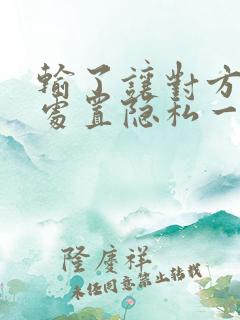 輸了讓對方
處置隐私一
隆慶祥
未经同意禁止转载